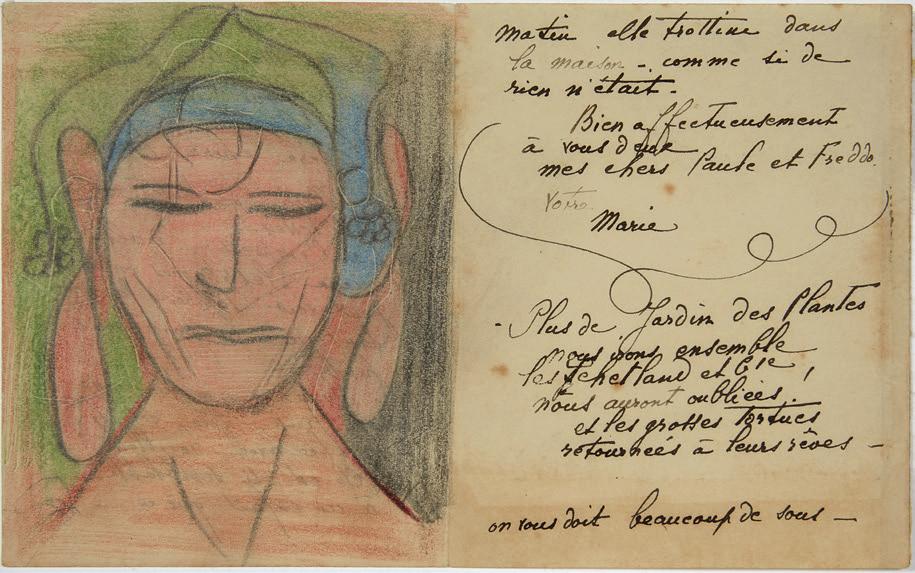 matin elle trottine dans
la maison - comme si de
rien n'était.
Bien affectueusement
à vous deux
mes chers Paule et Freddo.
Votre
Marie
- Plus de Jardin des Plantes
nous irons ensemble
les Schetland et Cie,
nous auront oubliées.
et les grosses tortues
retournées à leurs rêves -
on vous doit beaucoup de sous -